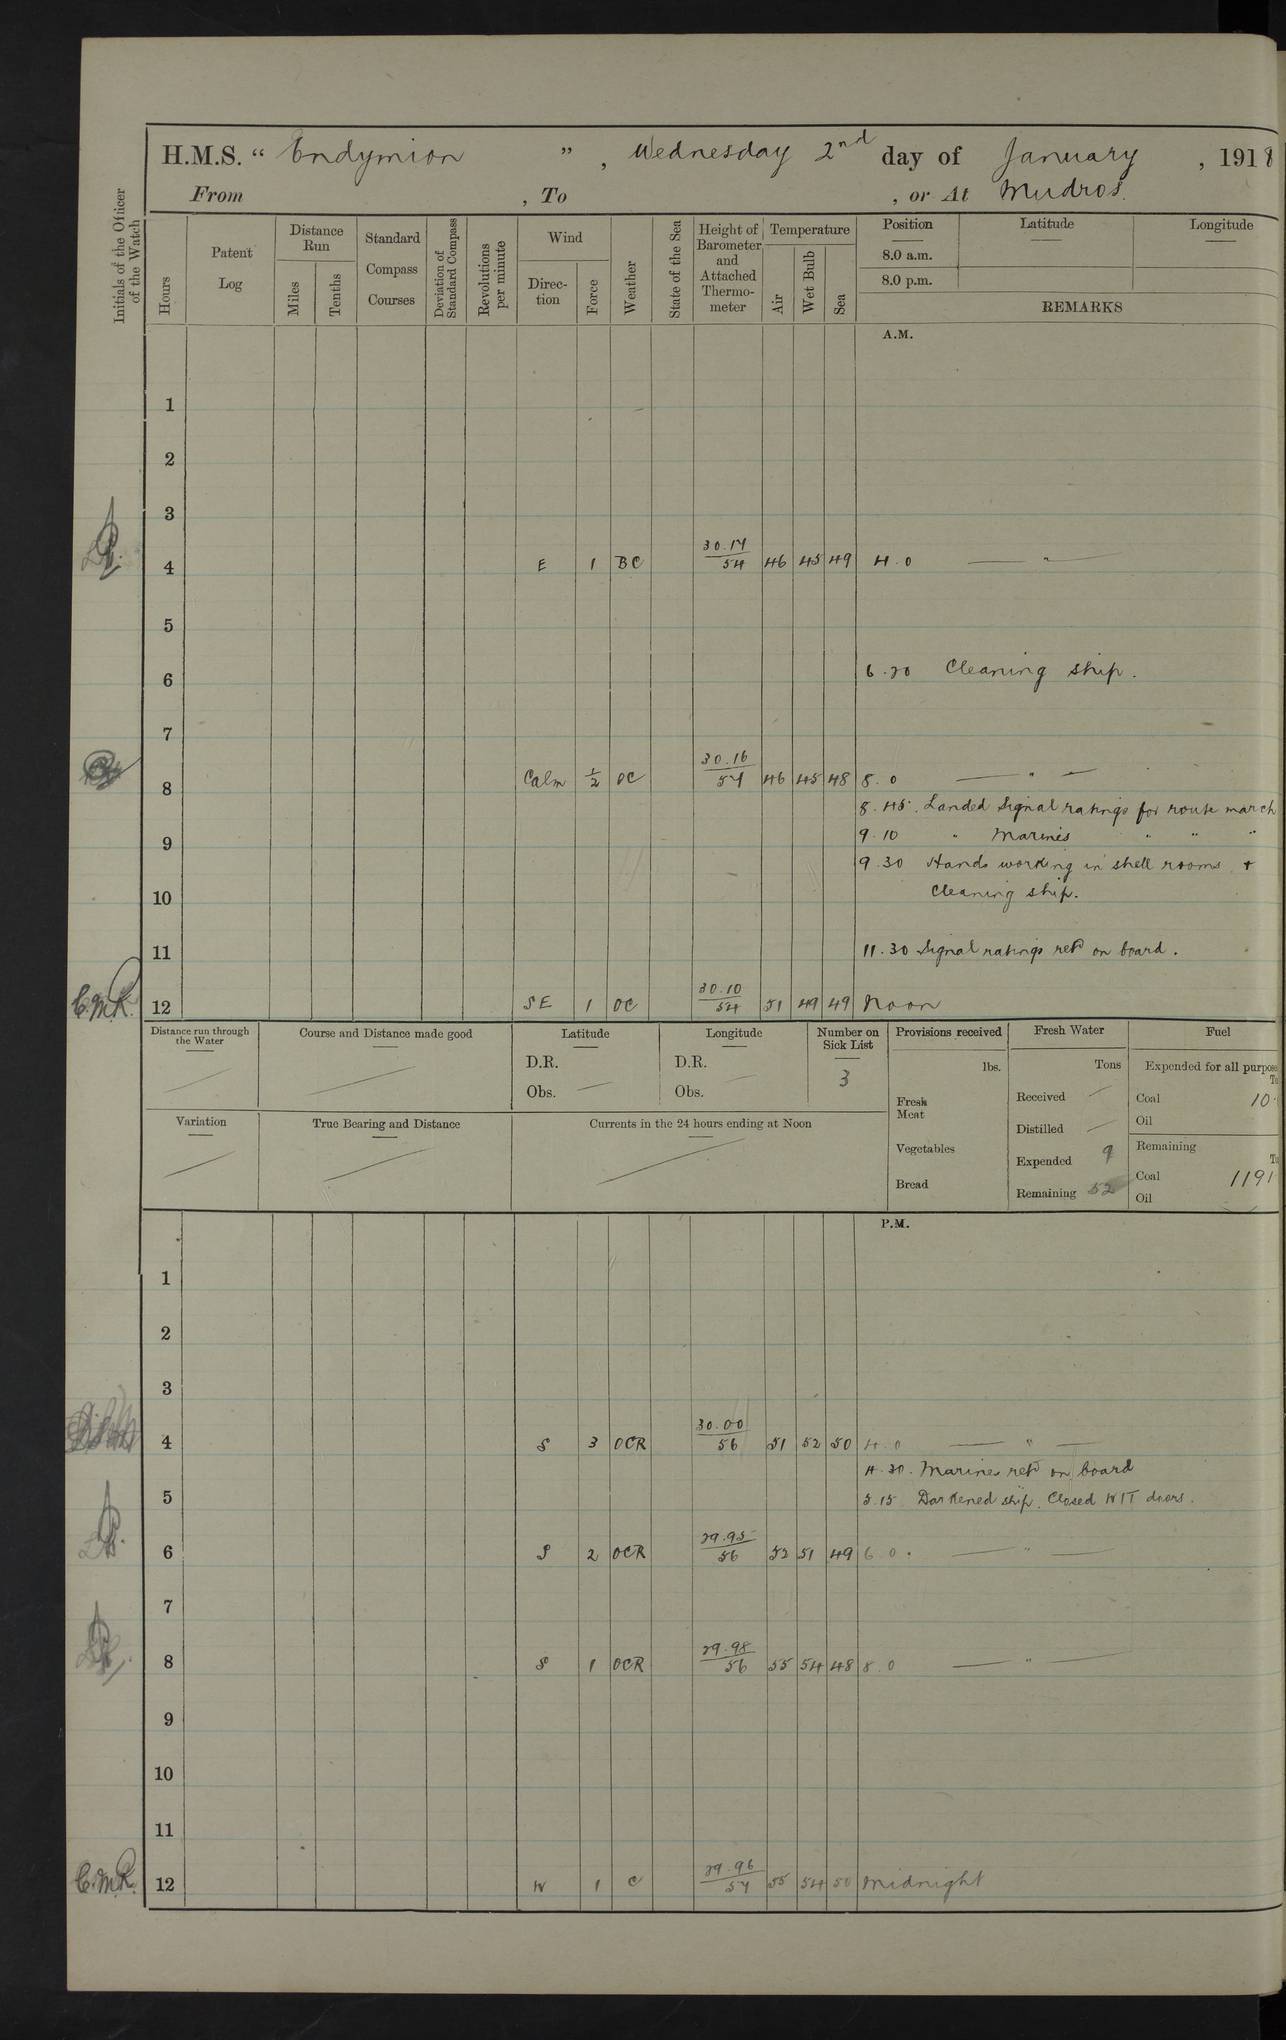 H.M.S. “ Endymion ” , Wednesday 2nd day of January , 1918
From , To , or At Mudros.
Initials of the Officer of the Watch
Hours
Patent Log
Distance Run
Miles
Tenths
Standard Compass Courses
Deviation of Standard Compass
Revolutions per minute
Wind
Direction
Force
Weather
State of the Sea
Height of Barometer and Attached Thermometer
Temperature
Air
Wet Bulb
Sea
Position Latitude Longitude
8.0 a.m.
8.0 p.m.
REMARKS
A.M.
1
2
3
30.14
4 E 1 BC 54 46 45 49 4.0 — " —
5
6.20 Cleaning ship.
6
7
30.16
8 Calm 1/2 OC 54 46 45 48 8.0 — " —
8.45. Landed Signal ratings for route march
9.10 " Marines " " "
9
9.30 Hands working in shell rooms, +
cleaning ship.
10
11.30 Signal ratings retd on board.
11
30.10
C.M.R. 12 SE 1 OC 54 51 49 49 Noon
Distance run through the Water
Course and Distance made good
Latitude
D.R.
Obs. —
Longitude
D.R.
Obs. —
Number on Sick List
3
Variation
True Bearing and Distance
Currents in the 24 hours ending at Noon
Provisions received
lbs.
Fresh Meat
Vegetables
Bread
Fresh Water
Tons
Received —
Distilled —
Expended 9
Remaining 52
Fuel
Expended for all purpose
Coal 10.
Oil
Remaining
Coal 1191
Oil
P.M.
1
2
3
30.00
4 S 3 OCR 56 51 52 50 4.0 — " —
4.30. Marines retd on board
5 5.15 Darkened ship. Closed W/T doors.
29.95
6 S 2 OCR 56 52 51 49 6.0. — " —
7
29.98
8 S 1 OCR 56 55 54 48 8.0 — " —
9
10
11
29.96
C.M.R. 12 W 1 C 57 55 54 50 Midnight